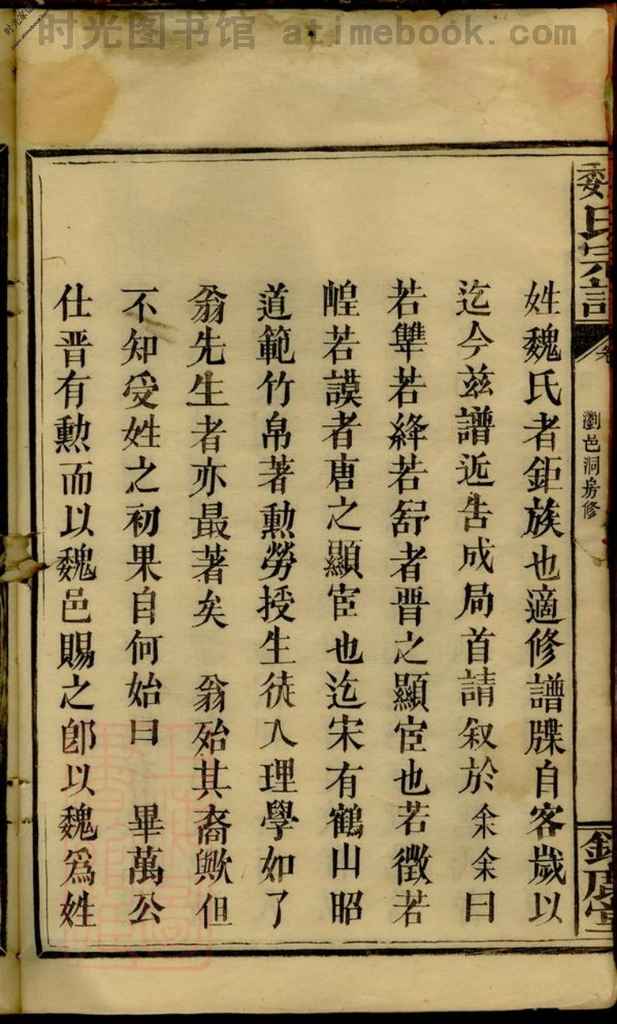 时光图书馆 atimebook.com
魏氏宗譜
卷
瀏邑洞房修
姓魏氏者鉅族也適修譜牒自客歲以
迄今茲譜近告成局首請叙於余余曰
若犨若絳若舒者晋之顯宦也若徵若
若謨者唐之顯宦也迄宋有鶴山昭
道範竹帛著勳勞授生徒入理學如了
翁先生者亦最著矣　翁殆其裔歟但
不知受姓之初果自何始曰　畢萬公
仕晋有勲而以魏邑賜之卽以魏爲姓